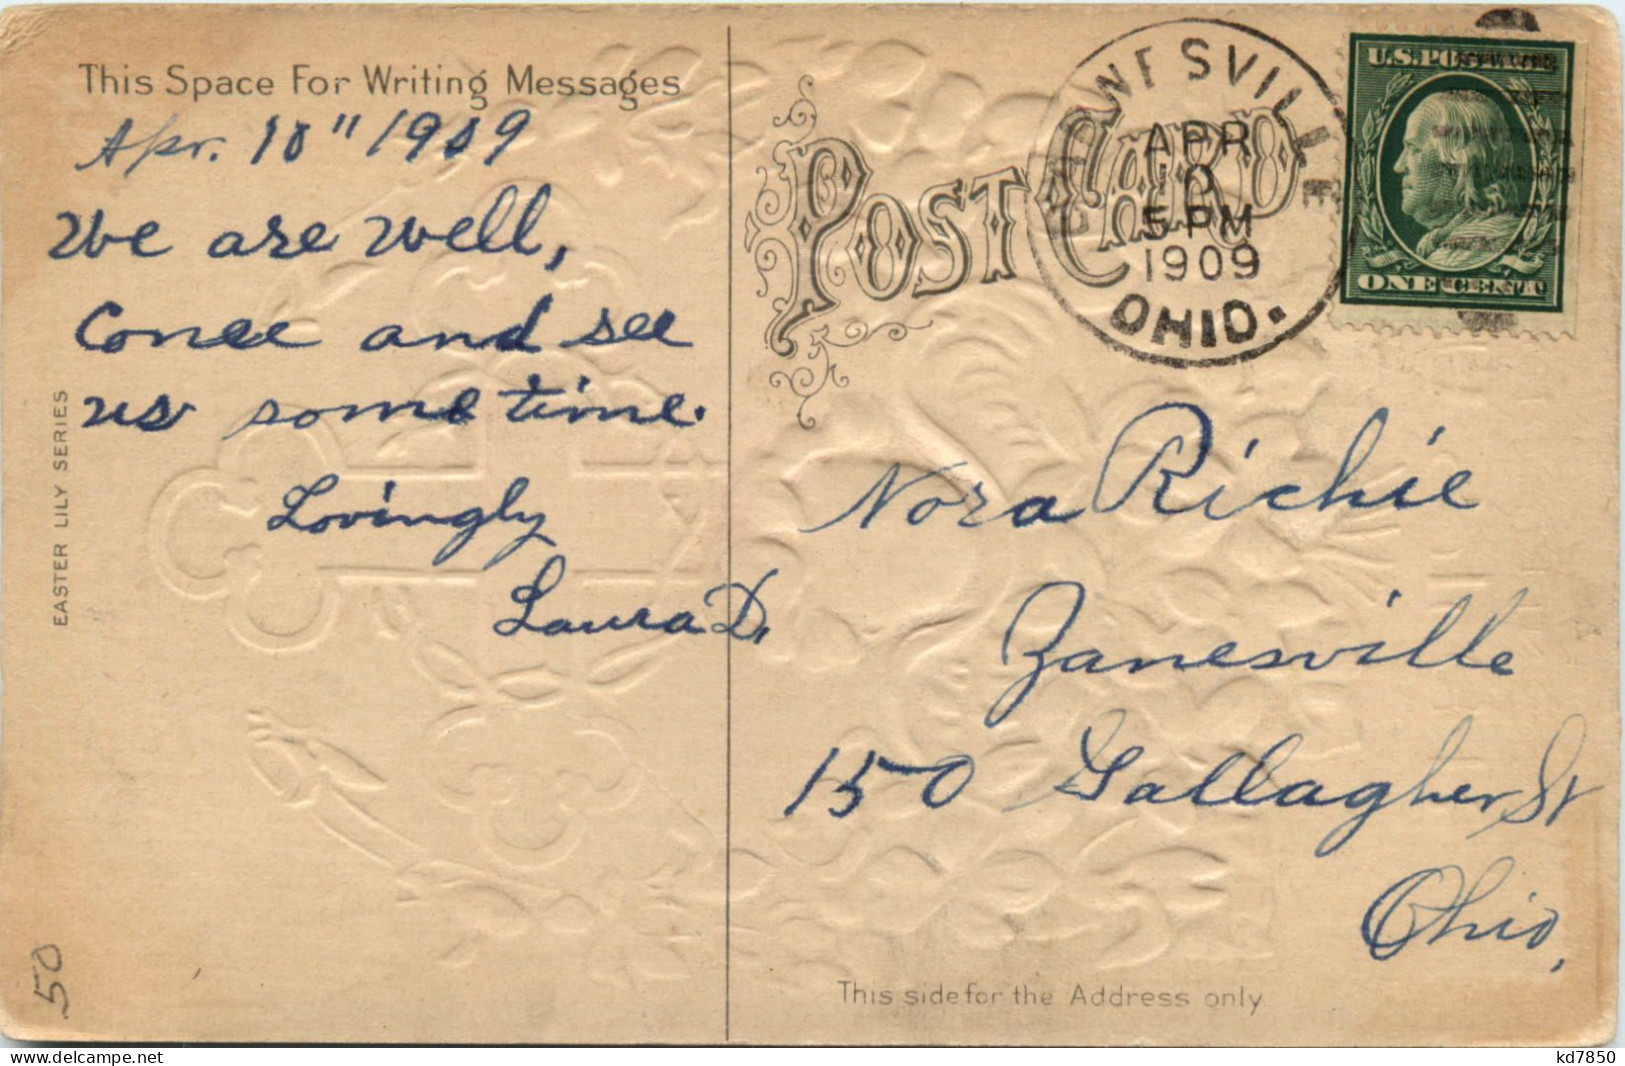 This Space For Writing Messages
Apr. 10" 1909
We are well,
Come and see
us some time.
Lovingly
Laura D.
EASTER LILY SERIES
50
POST CARD
APR
10
5 PM
1909
OHIO.
U.S. POSTAGE
ONE CENT
Nora Richie
Zanesville
150 Gallagher St
Ohio,
This side for the Address only
delcampe.net
kd7850